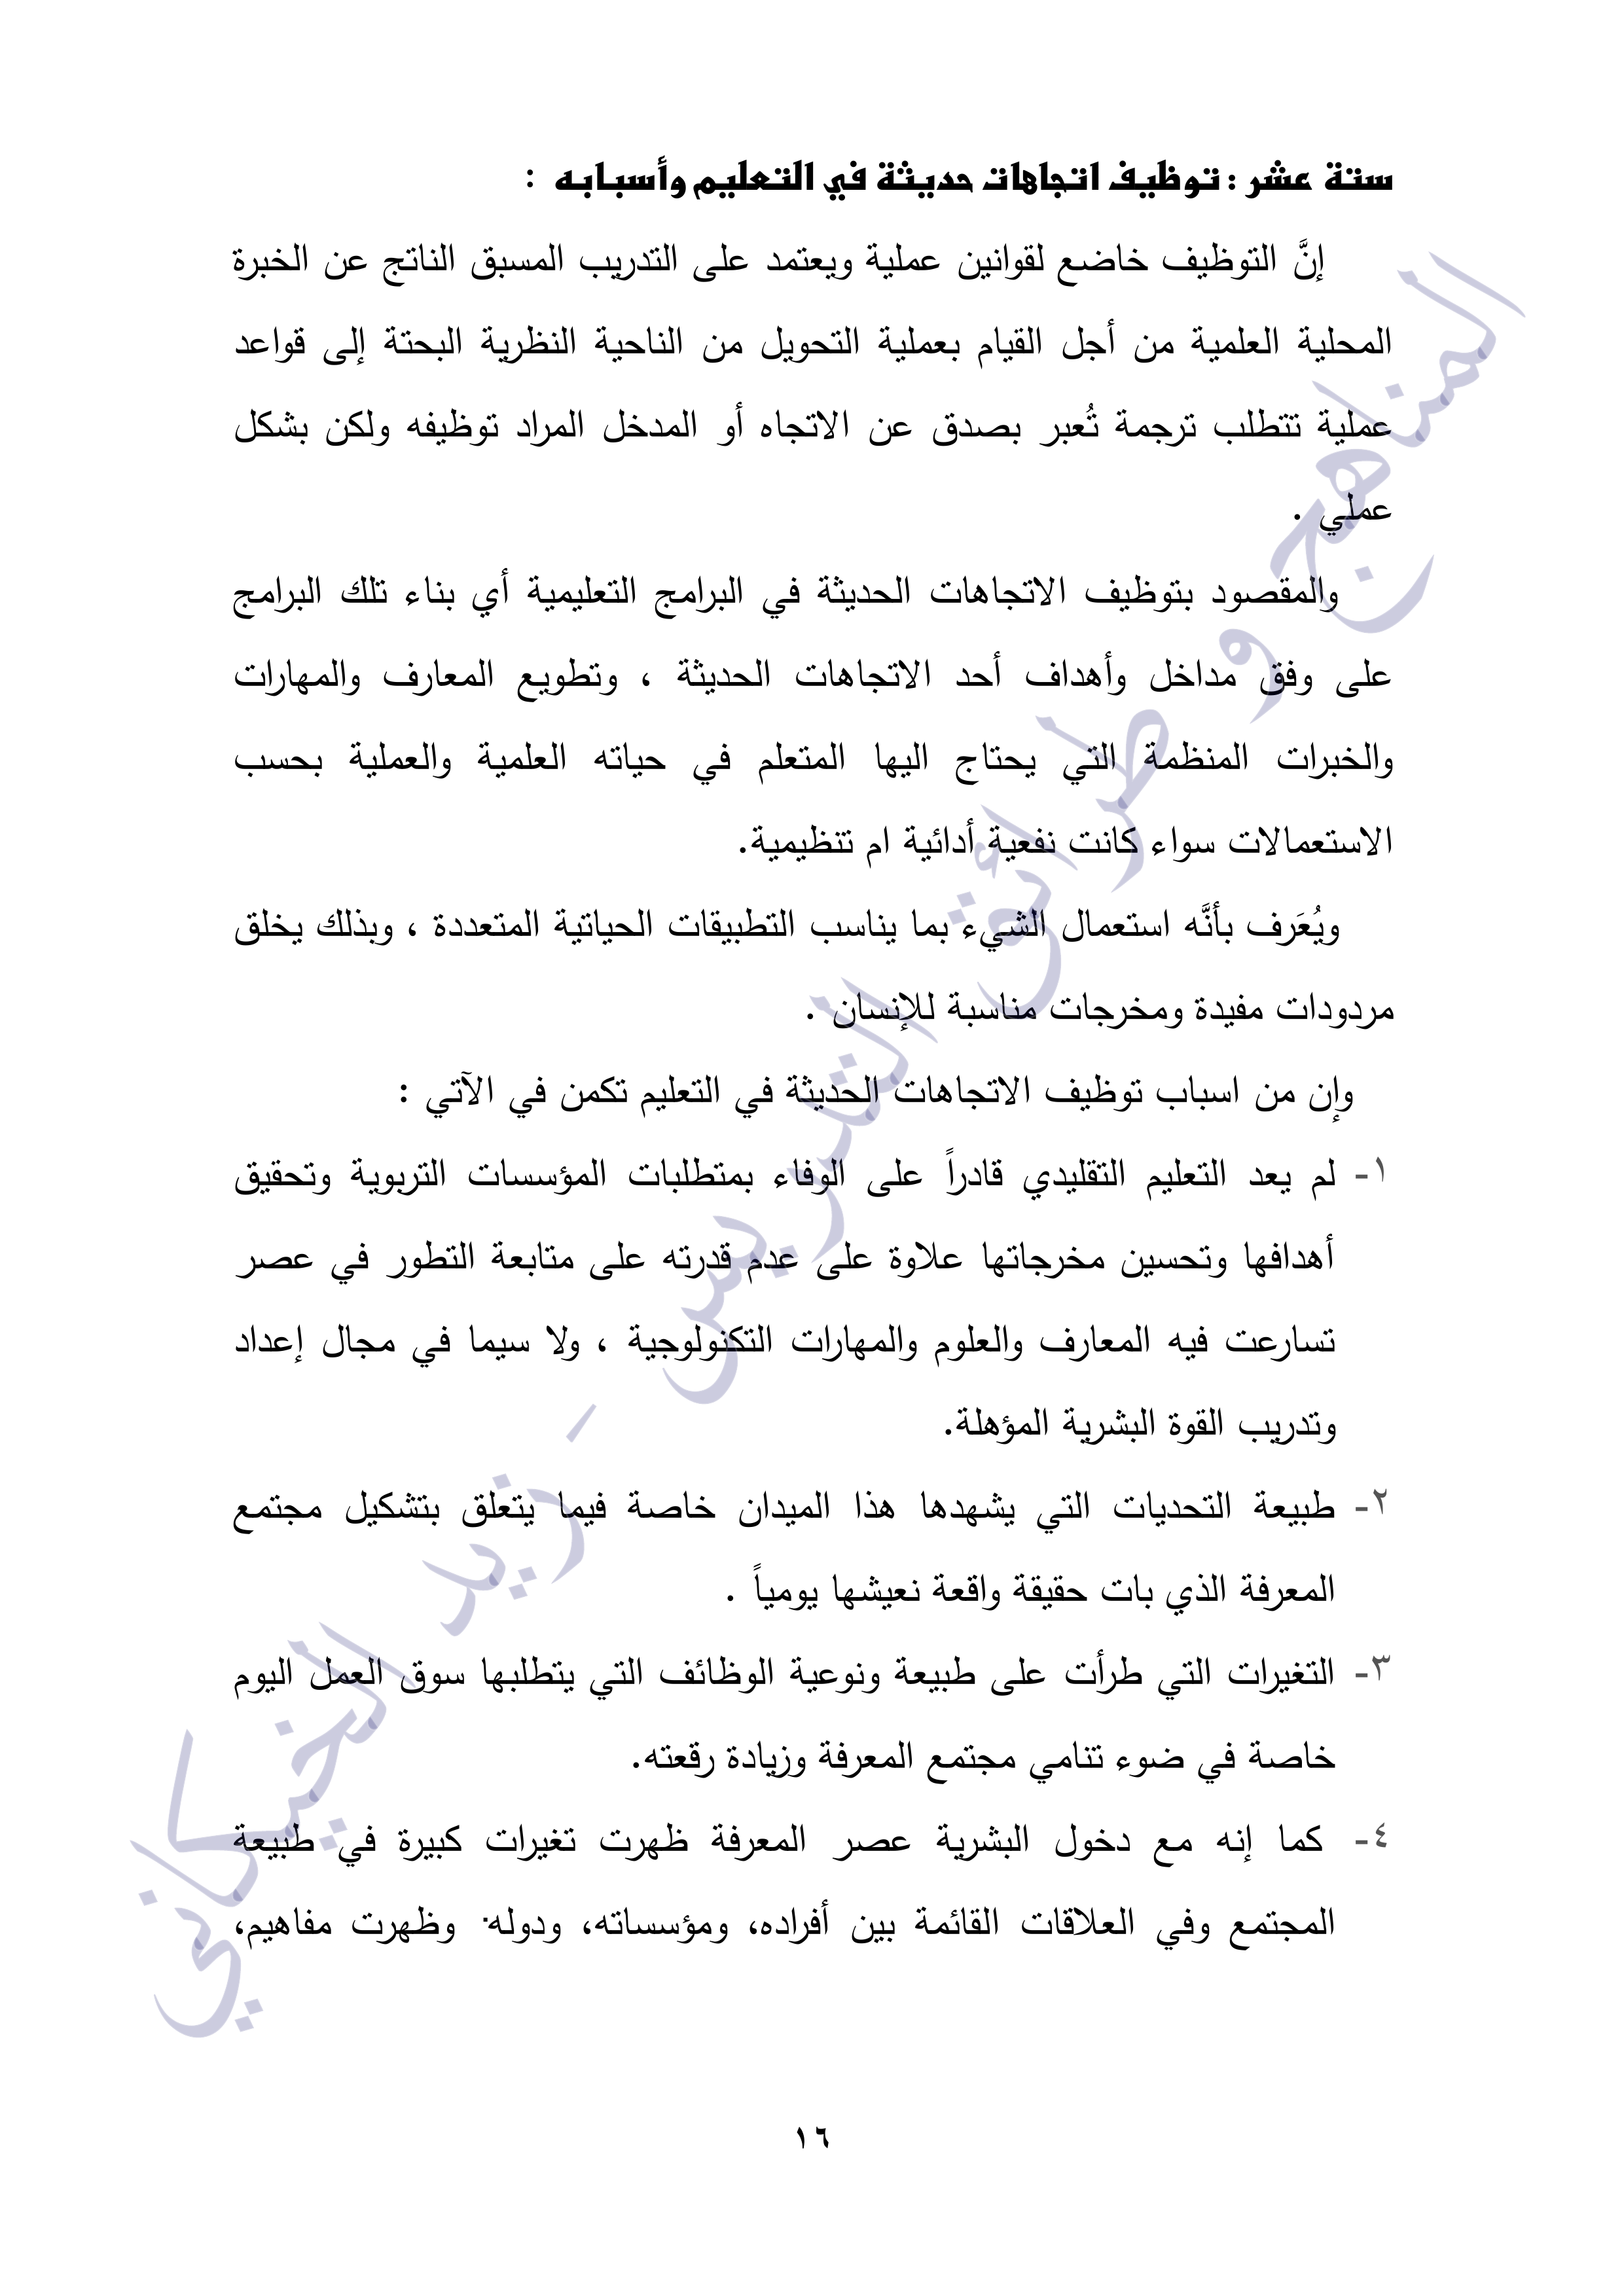 ستة عشر : توظيف اتجاهات حديثة في التعليم وأسبابه :
إنَّ التوظيف خاضع لقوانين عملية ويعتمد على التدريب المسبق الناتج عن الخبرة
المحلية العلمية من أجل القيام بعملية التحويل من الناحية النظرية البحتة إلى قواعد
عملية تتطلب ترجمة تُعبر بصدق عن الاتجاه أو المدخل المراد توظيفه ولكن بشكل
عملي .
والمقصود بتوظيف الاتجاهات الحديثة في البرامج التعليمية أي بناء تلك البرامج
على وفق مداخل وأهداف أحد الاتجاهات الحديثة ، وتطويع المعارف والمهارات
والخبرات المنظمة التي يحتاج اليها المتعلم في حياته العلمية والعملية بحسب
الاستعمالات سواء كانت نفعية أدائية ام تنظيمية.
ويُعَرف بأنَّه استعمال الشيء بما يناسب التطبيقات الحياتية المتعددة ، وبذلك يخلق
مردودات مفيدة ومخرجات مناسبة للإنسان .
وإن من اسباب توظيف الاتجاهات الحديثة في التعليم تكمن في الآتي :
١- لم يعد التعليم التقليدي قادراً على الوفاء بمتطلبات المؤسسات التربوية وتحقيق
أهدافها وتحسين مخرجاتها علاوة على عدم قدرته على متابعة التطور في عصر
تسارعت فيه المعارف والعلوم والمهارات التكنولوجية ، ولا سيما في مجال إعداد
وتدريب القوة البشرية المؤهلة.
٢- طبيعة التحديات التي يشهدها هذا الميدان خاصة فيما يتعلق بتشكيل مجتمع
المعرفة الذي بات حقيقة واقعة نعيشها يومياً .
٣- التغيرات التي طرأت على طبيعة ونوعية الوظائف التي يتطلبها سوق العمل اليوم
خاصة في ضوء تنامي مجتمع المعرفة وزيادة رقعته.
٤- كما إنه مع دخول البشرية عصر المعرفة ظهرت تغيرات كبيرة في طبيعة
المجتمع وفي العلاقات القائمة بين أفراده، ومؤسساته، ودوله. وظهرت مفاهيم،
١٦
المناهج و طرائق التدريس - زيد الخيكاني